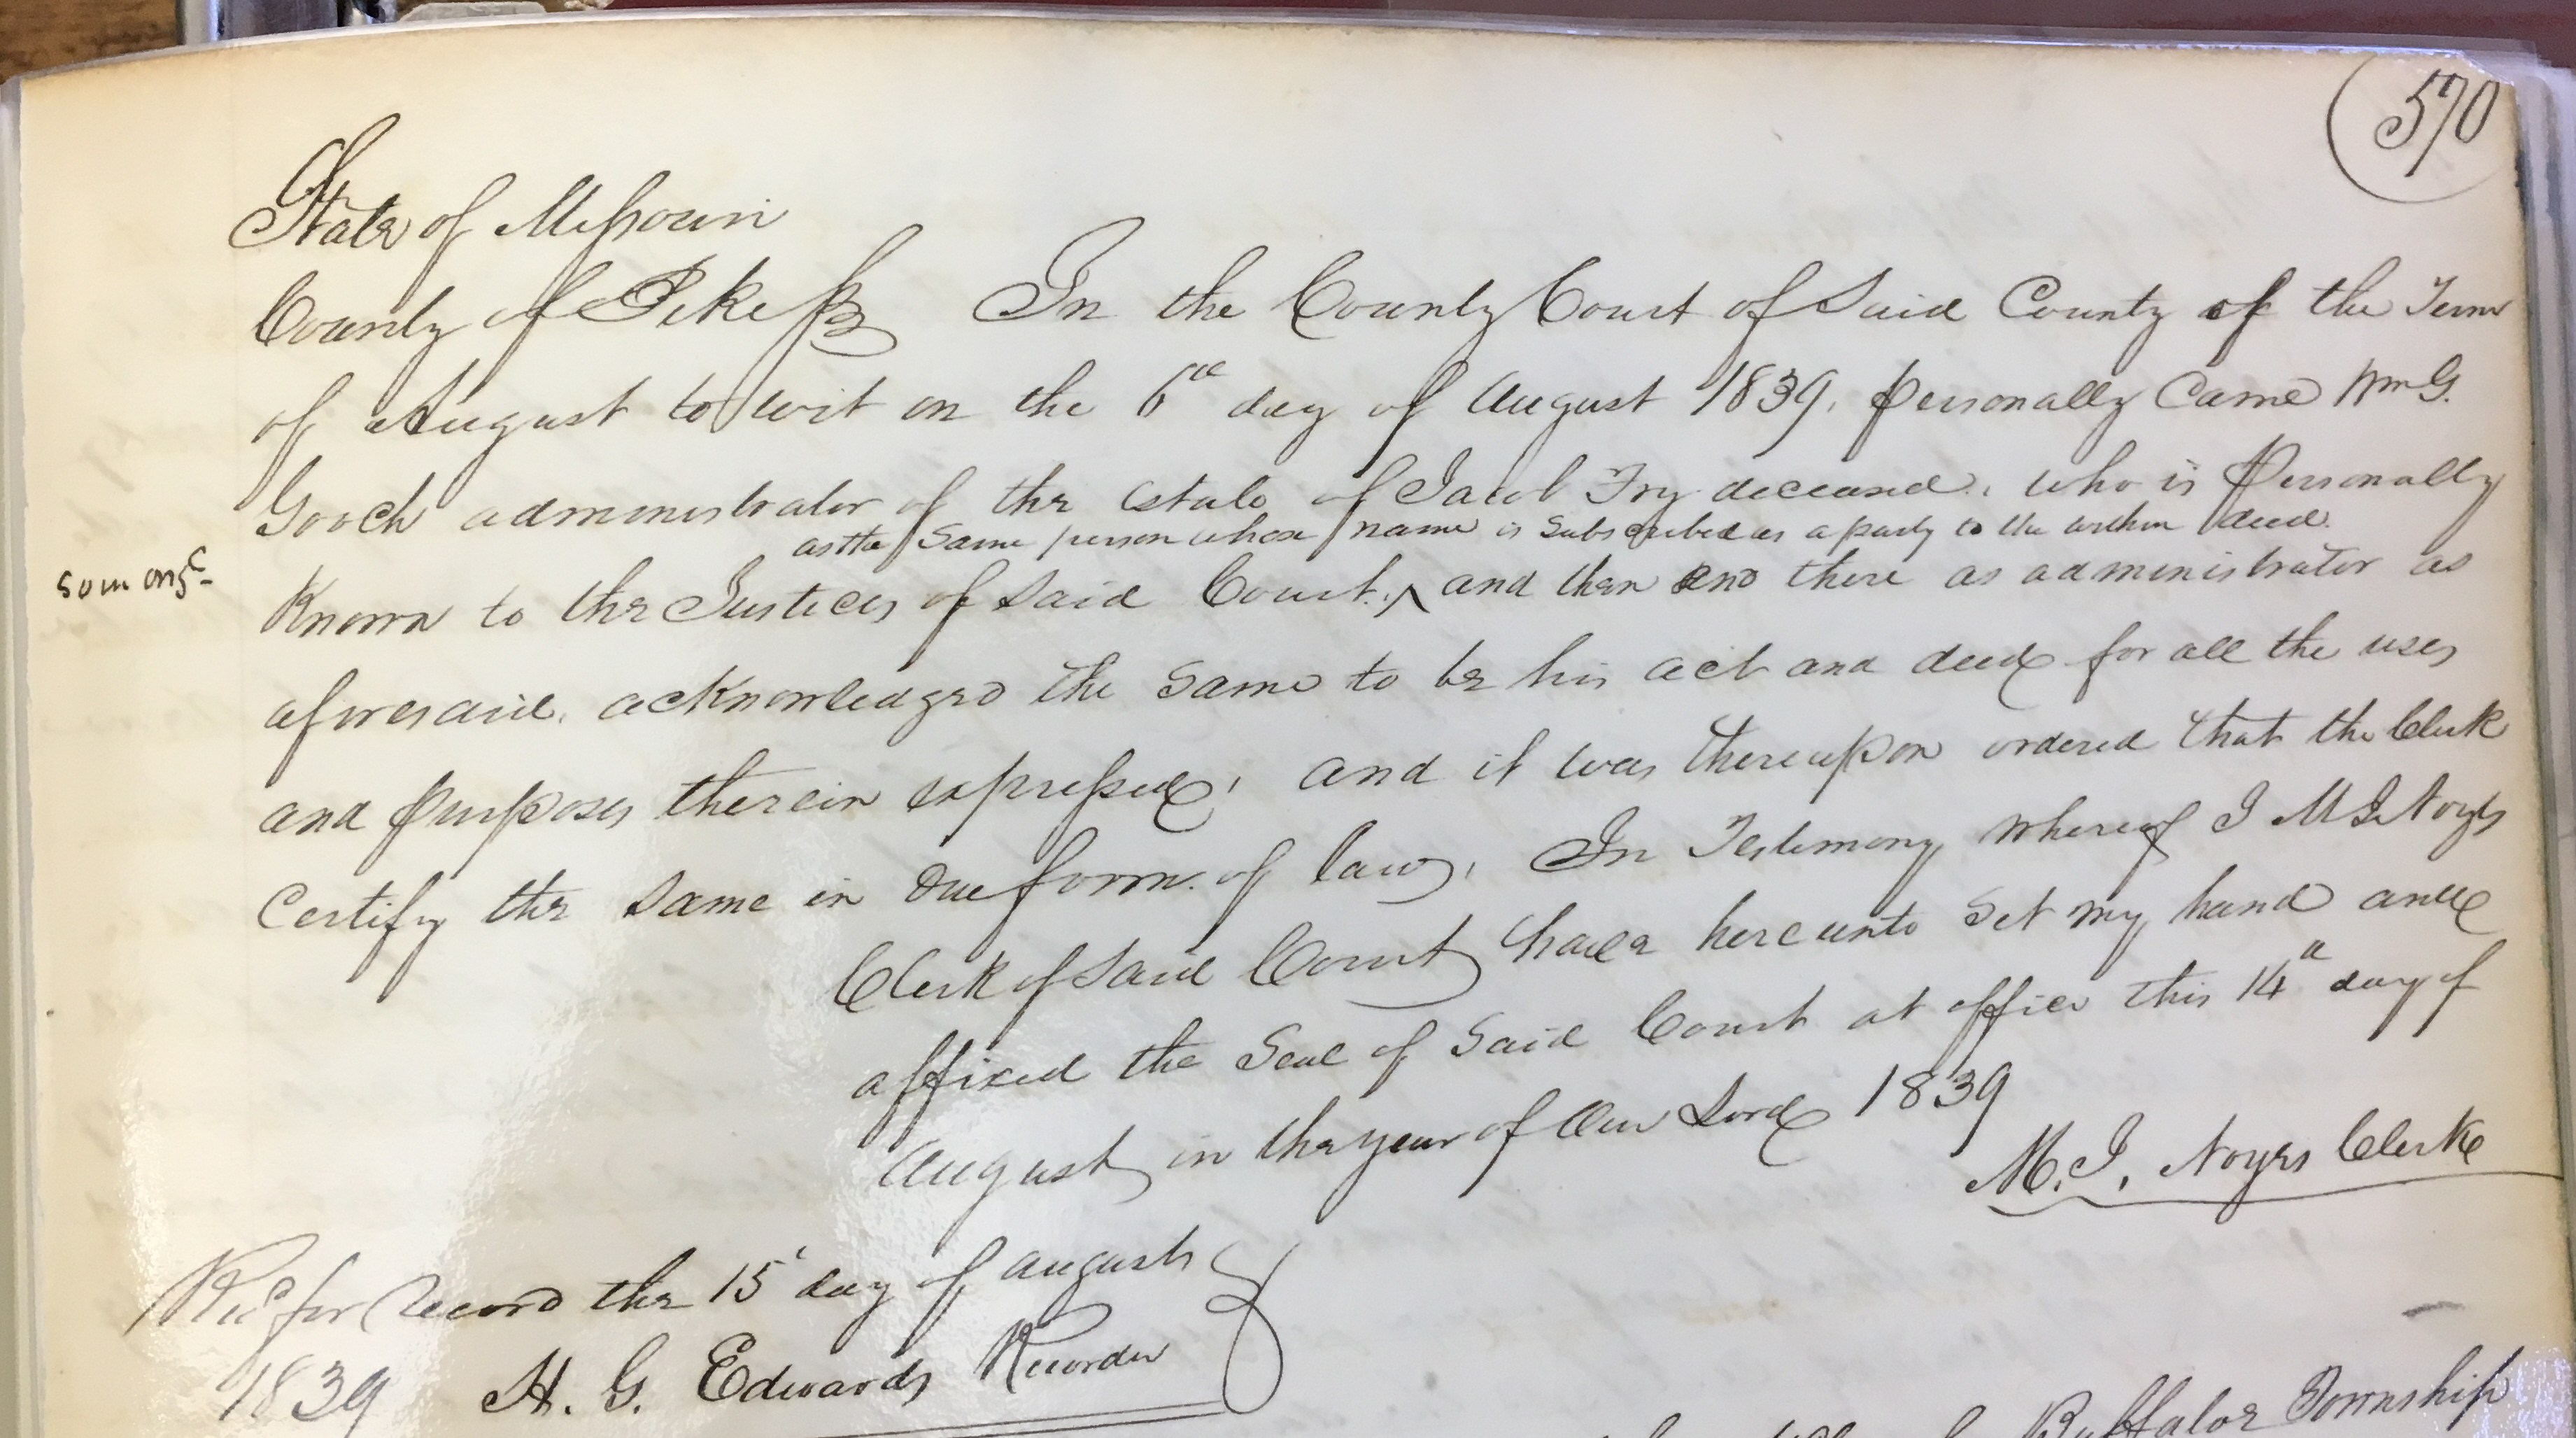 570
State of Missouri
County of Pike ss In the County Court of Said County of the Term
of August to wit on the 6th day of August 1839. personally Came Wm G.
Gooch administrator of the Estate of Jacob Fry deceased, who is Personally
as the Same person whose name is Subscribed as a party to the within deed.
Known to the Justices of Said Court, ^ and then and there as administrator as
aforesaid, acknowledged the Same to be his act and deed for all the uses
and purposes therein expressed, and it was thereupon ordered that the Clerk
Certify the Same in due form of law, In Testimony whereof I M J Noyes
Clerk of Said Court have hereunto Set my hand and
affixed the Seal of Said Court at office this 14th day of
August in the year of Our Lord 1839
M. J. Noyes Clerk
Recd for Record the 15 day of August
1839 H. G. Edwards Recorder
Buffaloe Township